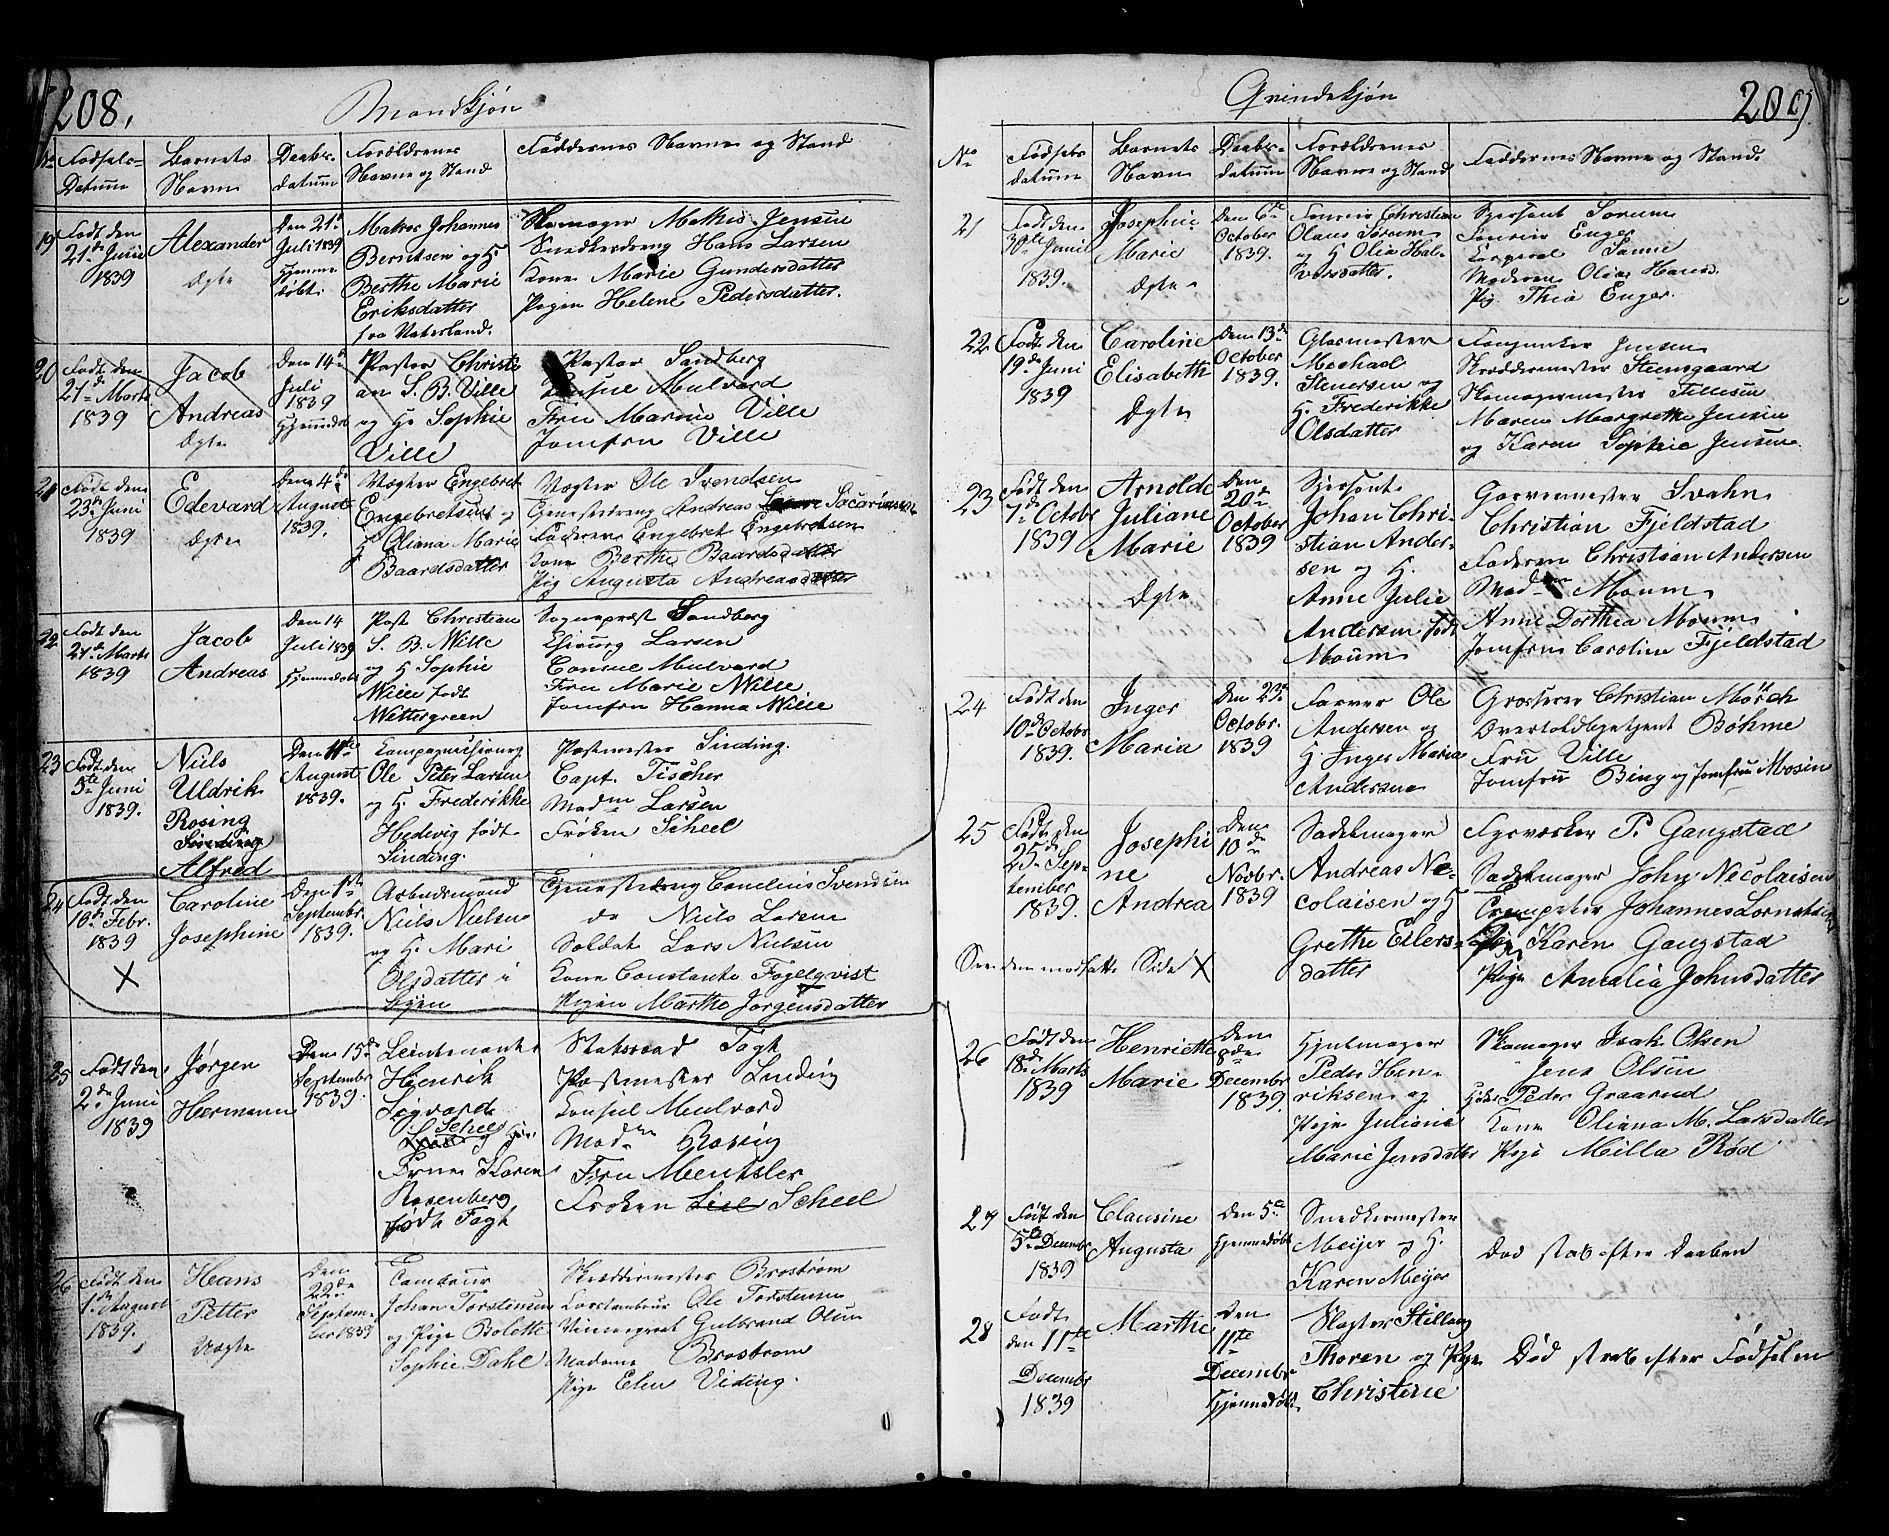 208.
Mandkjøn
No Fødsels- Datum
Barnets Navn
Daabs- datum
Forældrenes Navne og Stand
Faddernes Navne og Stand
19 Født den 21de Juni 1839
Alexander
Ægte
Den 21de Juli 1839 Hjemme døbt
Matros Johannes
Berntsen og H
Berthe Marie
Eriksdatter
fra Vaterland.
Skomager Mathis Jensen
Snedkerdreng Hans Larsen
Kone Marie Gundersdatter
Pigen Helene Pedersdatter.
20 Født den 21de Marts 1839
Jacob
Andreas
Ægte
Den 14de Juli 1839 Hjemmedøbt
Pastor Christi
an S. B. Wille
og H Sophie
Wille
Pastor Sandberg
Consul Mulvard
Fru Marie Wille
Jomfru Wille
21 Født den 23de Juni 1839
Edevard
Ægte
Den 4de August 1839.
Vægter Engebret
Engebretsen og
H Oliana Marie
Baardsdatter
Vægter Ole Svendsen
Tjenestedreng Andreas Sacariasen
Faderen Engebret Engebretsen
Kone Berthe Baardsdatter
Pig Augusta Andreasdatter
22 Født den 21de Marts 1839
Jacob
Andreas
Den 14 Juli 1839 Hjemmedøbt
Past Christian
S. B. Wille
og H Sophie
Wille født
Wettergreen
Sogneprest Sandberg
Chirurg Larsen
Consul Mulvard
Fru Marie Wille
Jomfru Hanna Wille
23 Født den 5te Juni 1839.
Niels
Uldrik
Rosing
Sinding
Alfred
Den 11te August 1839.
Kompagnichirurg
Ole Peter Larsen
og H. Frederikke
Hedevig født
Sinding.
Postmester Sinding.
Capt. Tischer
Madme Larsen
Frøken Scheel
24 Født den 10de Febr. 1839
X
Caroline
Josephine
Den 1ste Septembr 1839.
Arbeidsmand
Niels Nielsen
og H. Mari
Olsdatter i
byen
Tjenestedreng Conelius Svendsen
do Niels Larsen
Soldat Lars Nielsen
Kone Constante Fogelqvist
Pigen Marthe Jørgensdatter
25 Født den 2den Juni 1839
Jørgen
Hermann
Den 15de Septembr 1839.
Leutenant
Henrik
Sigvard
Scheel
Karen
Rosenberg
født Fogt
Statsraad Fogt
Postmester Sinding
Konsul Mulvard
Madme Rosing
Fru Mentzler
Frøken Scheel
26 Født den 1ste August 1839.
Hans
Petter
Uægte
Den 22de Septem- ber 1839
Tambour
Johan Torstensen
og Pige Bolette
Sophie Dahl
Skreddermester Brostrøm
Ole Torstensen
Gulbrand Olsen
Madame Brostrøm
Pige Elen Viding.
Qvindekjøn
209.
No Fødsels datum
Barnets Navn
Daabs- datum
Forældrenes Navne og Stand
Faddernes Navne og Stand.
21 Født den 30te Juni 1839.
Josephine
Marie
Ægte
Den 6te October 1839.
Fourer Christian
Olaus Sørum
og H Olia Hal-
vorsdatter.
Sjersant Sørum
Fourer Enger
Korporal Sanne
Moderen Olia Halvorsd.
Pig. Thea Enger.
22 Født den 19de Juni 1839
Caroline
Elisabeth
Ægte
Den 13de October 1839.
Glasmester
Mechael
Stenersen og
H. Frederikke
Olsdatter
Jensen
Skræddermester Steensgaard
Skomagermester Tillesen
Maren Margrethe Jensen
og Karen Sophie Jensen
23 Født den 7de Octobr 1839
Arnolde
Juliane
Marie
Ægte
Den 20de October 1839
Sjersant
Johan Chri-
stian Ander-
sen og H.
Anne Julie
Andersen født
Moum
Garvermester Svahn
Christian Fjeldstad
Faderen Christian Andersen
Madme Moum
Anne Dorthea Moum
Jomfru Caroline Fjeldstad
24 Født den 10de Octobr 1839.
Inger
Maria
Den 23de Octobr. 1839
Farver Ole
Andersen og
H Inger Maria
Andersen
Grosserer Christian Mørch
Overtoldbetjent Bøhme
Fru Wille
Jomfru Bing og Jomfru Mosin
25 Født den 25de Sep- tember 1839.
Josephi
ne
Andrea
Den 10de Novbr. 1839
Sadelmager
Andreas Ne-
colaisen og H
Grethe Eilers-
datter
P. Gangstad
Sadelmager John Necolaisen
Trompeter Johannes
Pig Karen Gangstad
Pige Amalia Johnsdatter
See den modsatte Side X
26 Født den 18de Marts 1839
Henriette
Marie
Den 8de Decembr 1839.
Hjulmager
Peder Hen-
riksen og
Pige Juliane
Marie Jensdatter
Skomager Isak Olsen
Jens Olsen
Peder Graarud
Kone Oliana M. Larsdatter
Pige Milla Rød
27 Født den 5te Decembr 1839
Clausine
Augusta
Den 5te Hjemmedøbt
Snedkermester
Meijer og H.
Karen Meijer
Død strax efter Daaben
28 Født den 11te Decembr 1839
Marthe
Den 11te Decembr Hjemmedøbt
Slagter Stillaug
Thoren og Pige
Christine
Død strax efter Fødselen